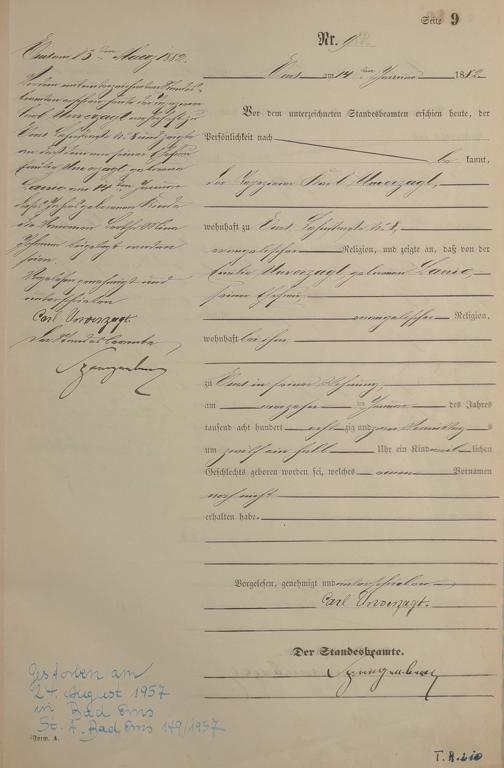 Seite 9
Nr. 9
Ems am 14 ten Januar 1882
Vor dem unterzeichneten Standesbeamten erschien heute, der
Persönlichkeit nach
be kannt,
der Tapezierer Karl Unverzagt,
wohnhaft zu Ems,
evangelischer Religion, und zeigte an, daß von der
Emilie Unverzagt, geborenen
seiner Ehefrau,
evangelischer Religion,
wohnhaft bei ihm,
zu Ems in seiner Wohnung,
am vierzehn ten Januar des Jahres
tausend acht hundert acht zig und zwei Vormittag s
um zwölf ein halb Uhr ein Kind weib lichen
Geschlechts geboren worden sei, welches einen Vornamen
noch nicht
erhalten habe.
Vorgelesen, genehmigt und unterschrieben
Carl Unverzagt.
Der Standesbeamte.
Spangenberg
Ems am 13 ten März 1882.
Vor dem unterzeichneten Standes-
beamten erschien heute der Tapezierer
Karl Unverzagt wohnhaft zu
Ems und zeigte
an, daß dem von seiner Ehefrau
Emilie Unverzagt geborene
am 14 ten Januar
geborenen Kinde
die Vornamen
beigelegt worden
seien.
Vorgelesen genehmigt und
unterschrieben
Carl Unverzagt.
Der Standesbeamte,
Spangenberg
Gestorben am
24. August 1957
in Bad Ems
St. A. Bad Ems 149/1957
Form. A.